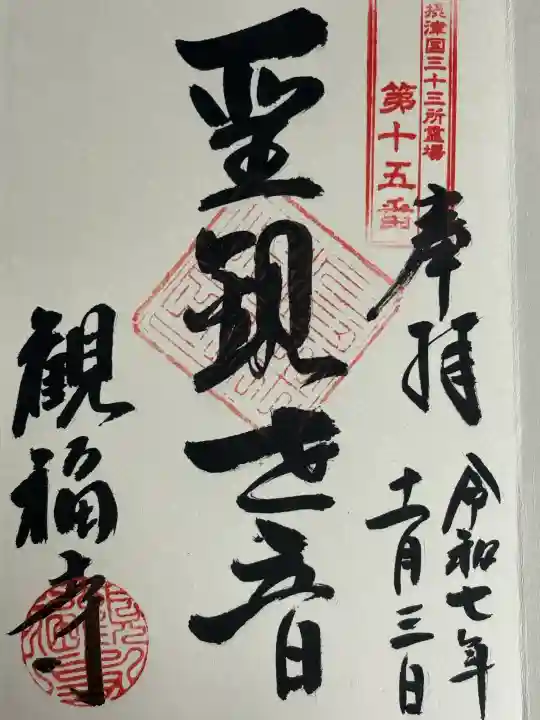 摂津国三十三所霊場
第十五番
奉拝
令和七年
十一月三日
聖観世音
観福寺